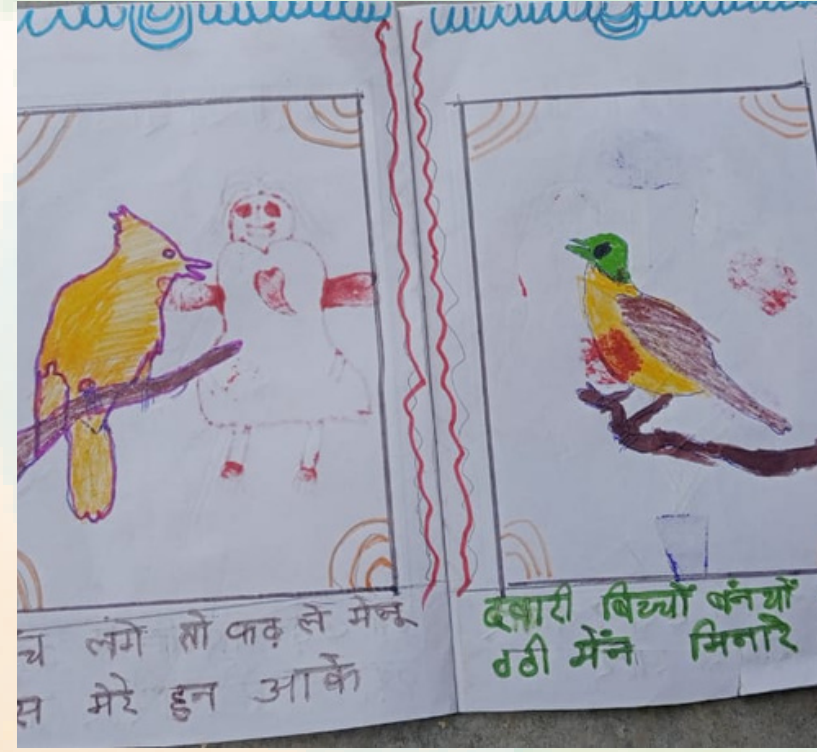 च लगे तो कढ़ ले मेनू
स मेरे हुन आके
दवारी बिच्चों बंनयों
ठठी मेंन मिनारे